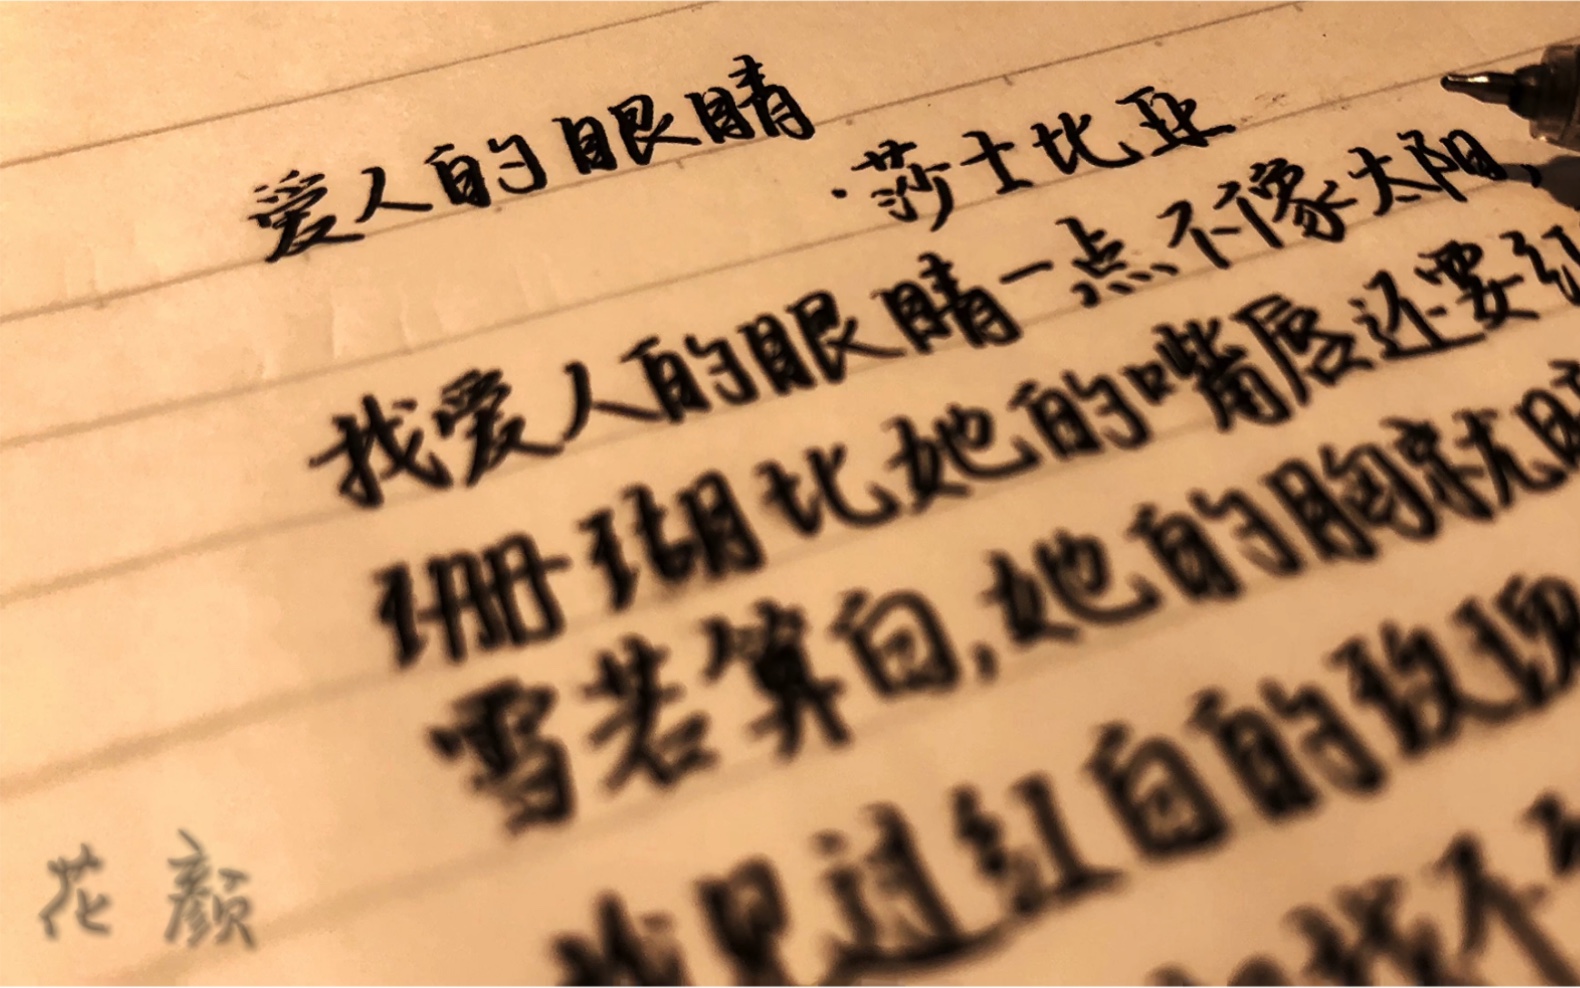 爱人的眼睛
·莎士比亚
我爱人的眼睛一点不像太阳,
珊瑚比她的嘴唇还要红
雪若算白,她的胸就暗
我见过红白的玫瑰
找不
花颜